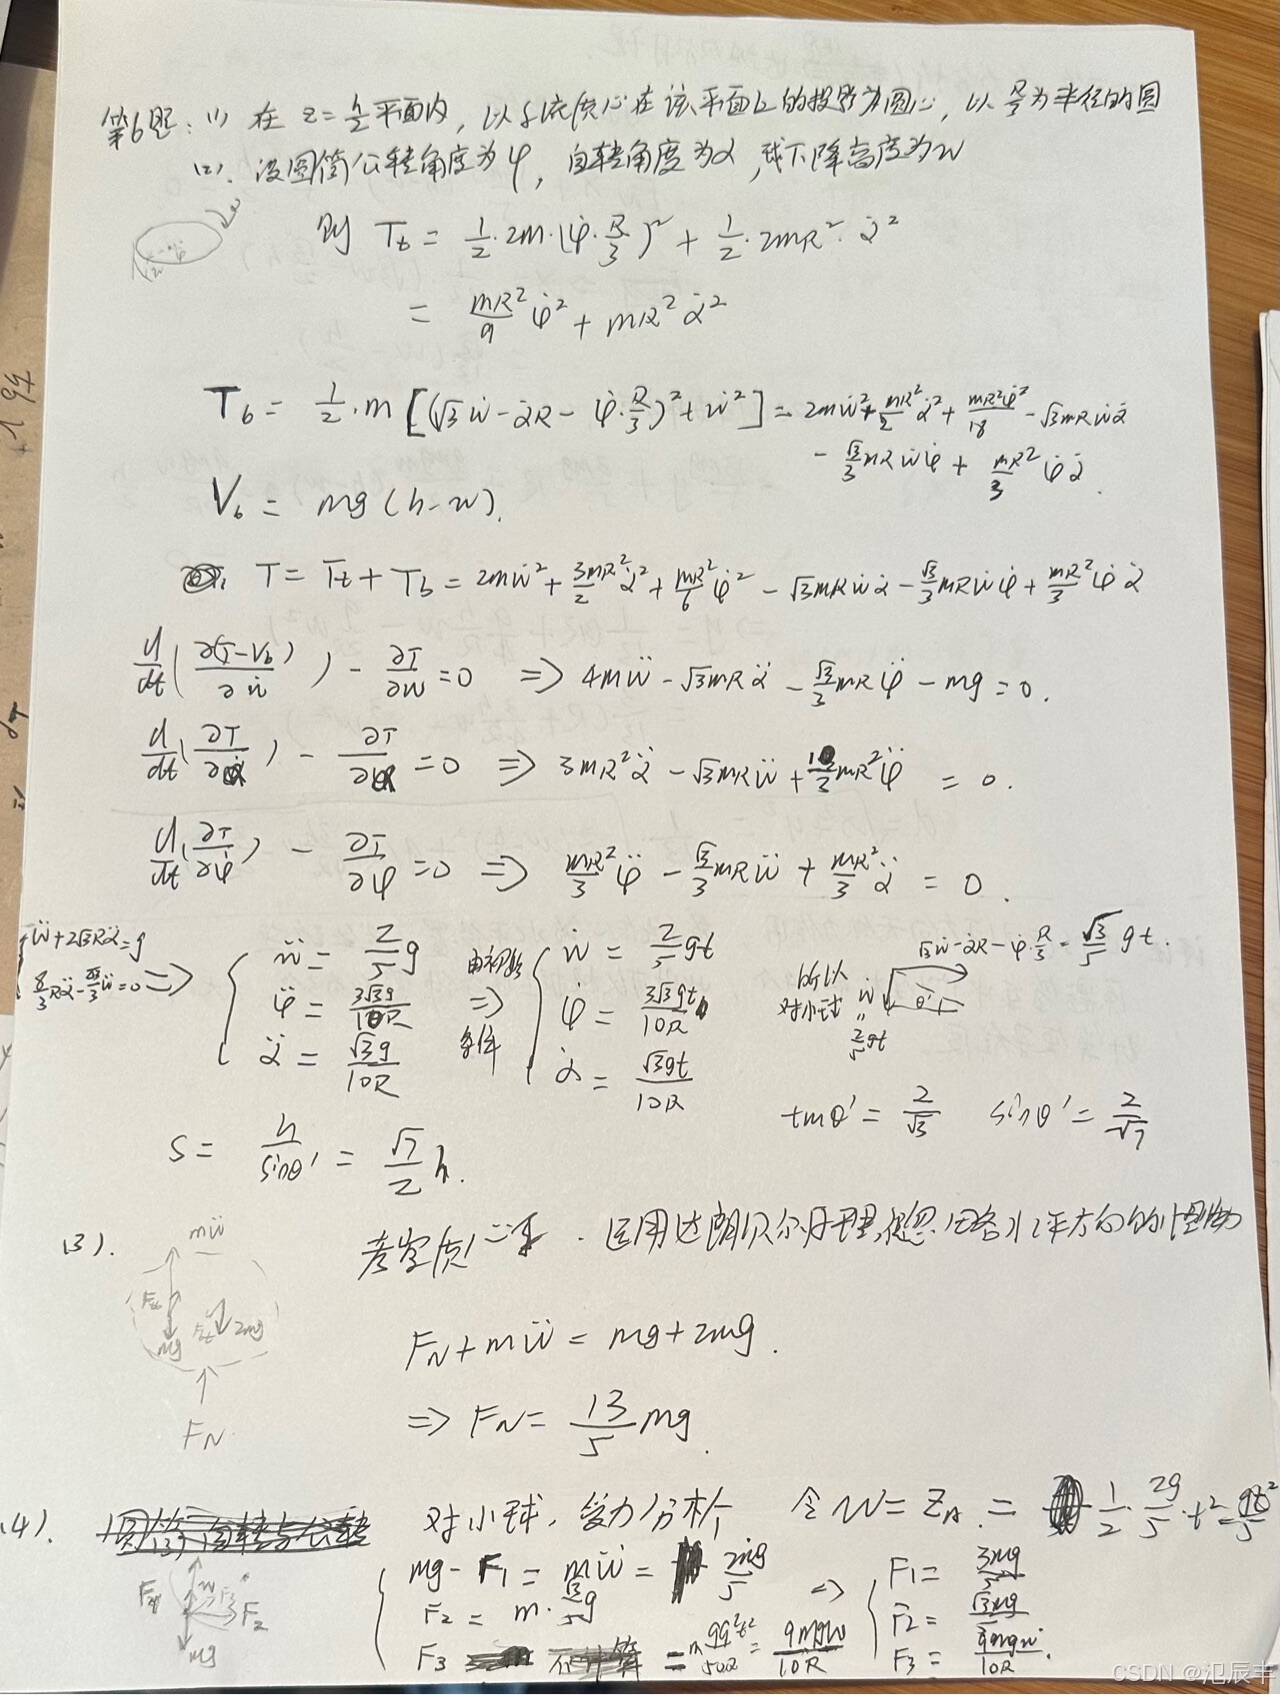 第6题: (1) 在 z = h/2 平面内, 以系统质心在该平面上的投影为圆心, 以 R/3 为半径的圆
(2). 设圆筒公转角度为φ, 自转角度为α, 球下降高度为w
则 T_t = 1/2·2m·(φ̇·R/3)² + 1/2·2mR²·α̇²
= mR²/9 φ̇² + mR²α̇²
T_b = 1/2·m[(√3ẇ - α̇R - φ̇·R/3)² + ẇ²] = 2mẇ² + mR²/2 α̇² + mR²φ̇²/18 - √3mRẇα̇
- √3/3 mRẇφ̇ + mR²/3 φ̇α̇.
V_b = mg(h-w).
T = T_t + T_b = 2mẇ² + 3mR²/2 α̇² + mR²/6 φ̇² - √3mRẇα̇ - √3/3 mRẇφ̇ + mR²/3 φ̇α̇
d/dt(∂(T-V_b)/∂ẇ) - ∂T/∂w = 0 ⇒ 4mẅ - √3mRα̈ - √3/3 mRφ̈ - mg = 0.
d/dt(∂T/∂α̇) - ∂T/∂α = 0 ⇒ 3mR²α̈ - √3mRẅ + mR²φ̈ = 0.
d/dt(∂T/∂φ̇) - ∂T/∂φ = 0 ⇒ mR²/3 φ̈ - √3/3 mRẅ + mR²/3 α̈ = 0.
ẅ+2√3Rα̈=g
8/3 Rα̈ - ẅ=0 ⇒
{ ẅ = 2/5 g
φ̈ = 3√3g/10R
α̈ = √3g/10R
由初始条件 ⇒
{ ẇ = 2/5 gt
φ̇ = 3√3gt/10R
α̇ = √3gt/10R
所以对小球
√3ẇ - α̇R - φ̇·R/3 = √3/5 gt.
ẇ = 2/5 gt
θ'
tanθ' = 2/√3 sinθ' = 2/√7
s = h/sinθ' = √7/2 h.
(3). 考虑质心系. 运用达朗贝尔原理, 水平方向的
mẅ
mg
2mg
F_N
F_N + mẅ = mg + 2mg.
⇒ F_N = 13/5 mg.
(4). 对小球, 受力分析 令 w = z_A = 1/2·2g/5·t² = gt²/5
F_2
mg
{ mg - F_1 = mẅ = 2mg/5
F_2 = m·√3/5 g
F_3 = m 9g²t²/50R = 9mgw/10R
⇒ { F_1 = 3mg/5
F_2 = √3mg/5
F_3 = 9mgw/10R.
CSDN @氾辰丰